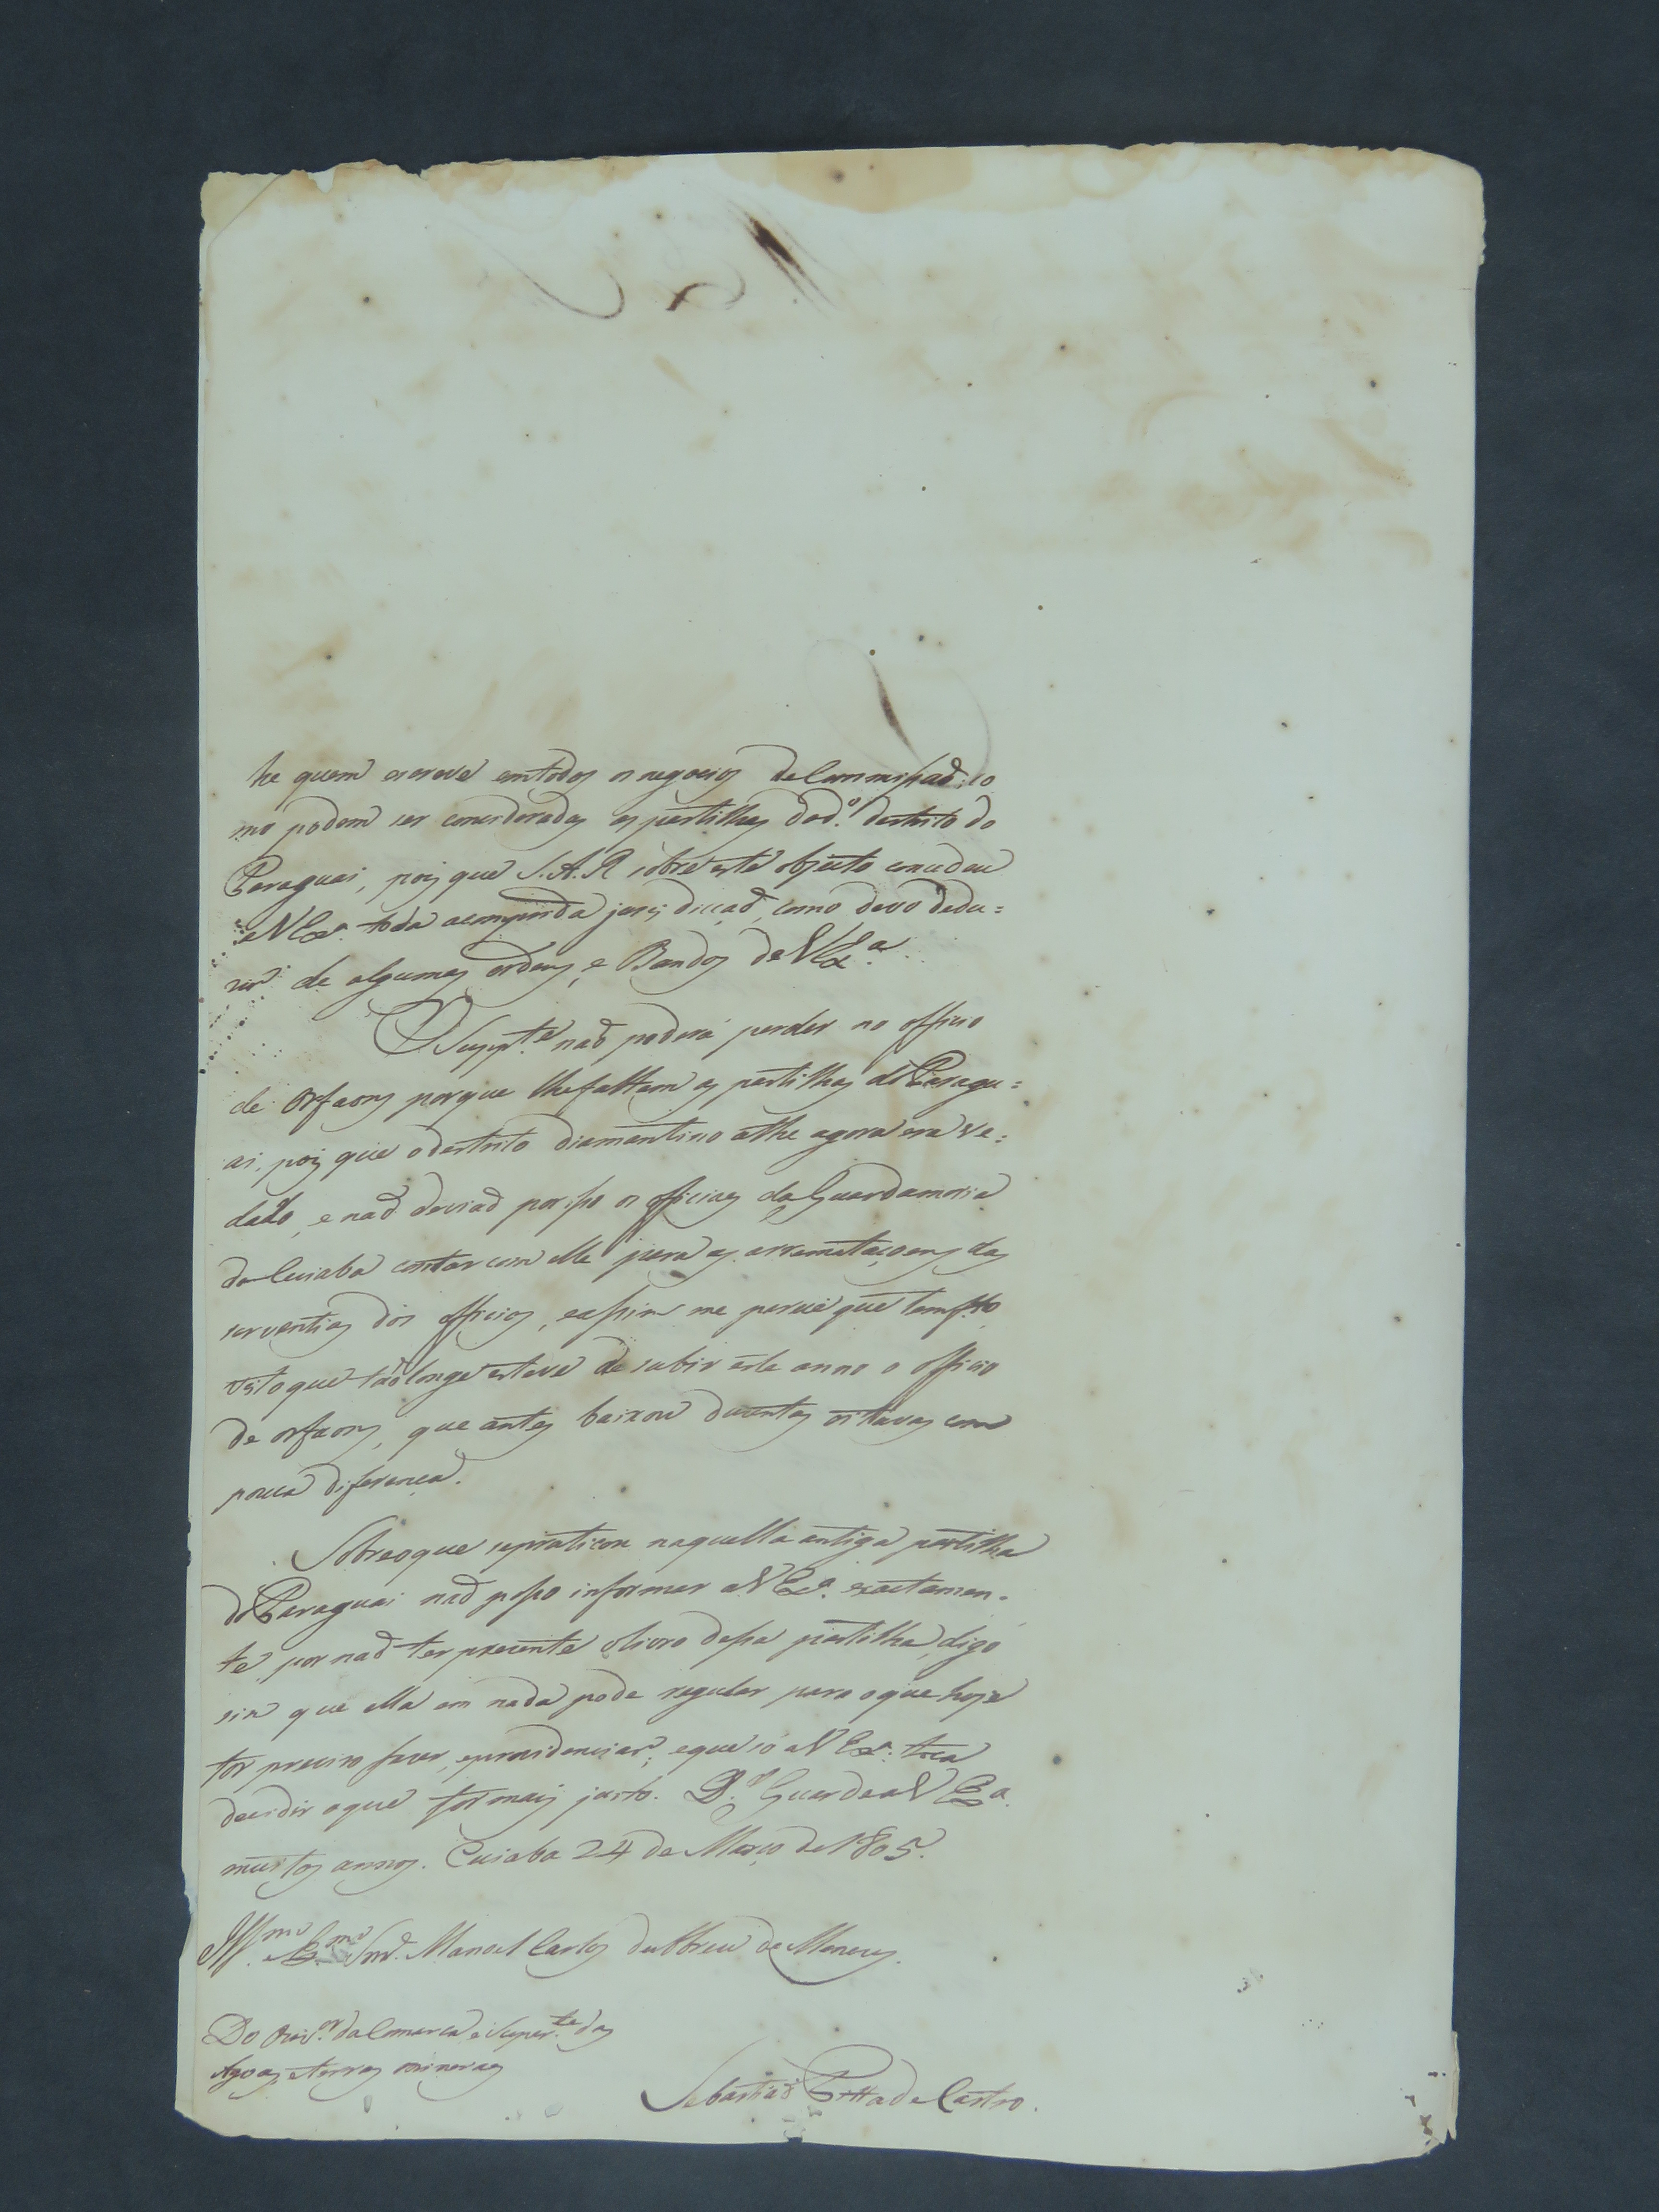 he quem escreve em todos os negocios de Commissaõ; co
mo podem ser consideradas as partilhas do d.º destrito do
Paraguai, pois que S.A.R sobre este objecto concedeu
a V Ex.ª toda a comprida jurisdicçaõ, como devo dedu=
zir de algumas ordens, e Bandos de V Ex.ª
O Supp.te naõ poderá perder no officio
de Orfaons porque lhe faltem as partilhas do Paragu=
ai, pois que o destrito diamantino athe agora era ve=
dado, e naõ deviaõ por isso os officiaes da Guardamoria
do Cuiaba contar com elle para as arremataçoens das
serventias dos officios, e assim me parece que
visto que taõ longe esteve de subir este anno o officio
de orfaons, que antes baixou duzentas oitavas com
pouca diferença.
Sobre o que se praticou naquella antiga partilha
do Paraguai naõ posso informar a V Ex.ª exactamen=
te por naõ ter prezente o livro dessa partilha, digo
sim que ella em nada pode regular para o que hoje
for precizo fazer, e providenciar; e que só a V Ex.ª toca
decidir o que for mais justo. D.s Guarde a V Ex.ª
muitos annos. Cuiaba 24 de Março de 1805.
Ill.mo e Ex.mo Snr. Manoel Carlos de Abreu de Menezes.
Do Ouv.or da Comarca e Super.te das
Agoas, e terras mineraes
Sebastiaõ Pitta de Castro.